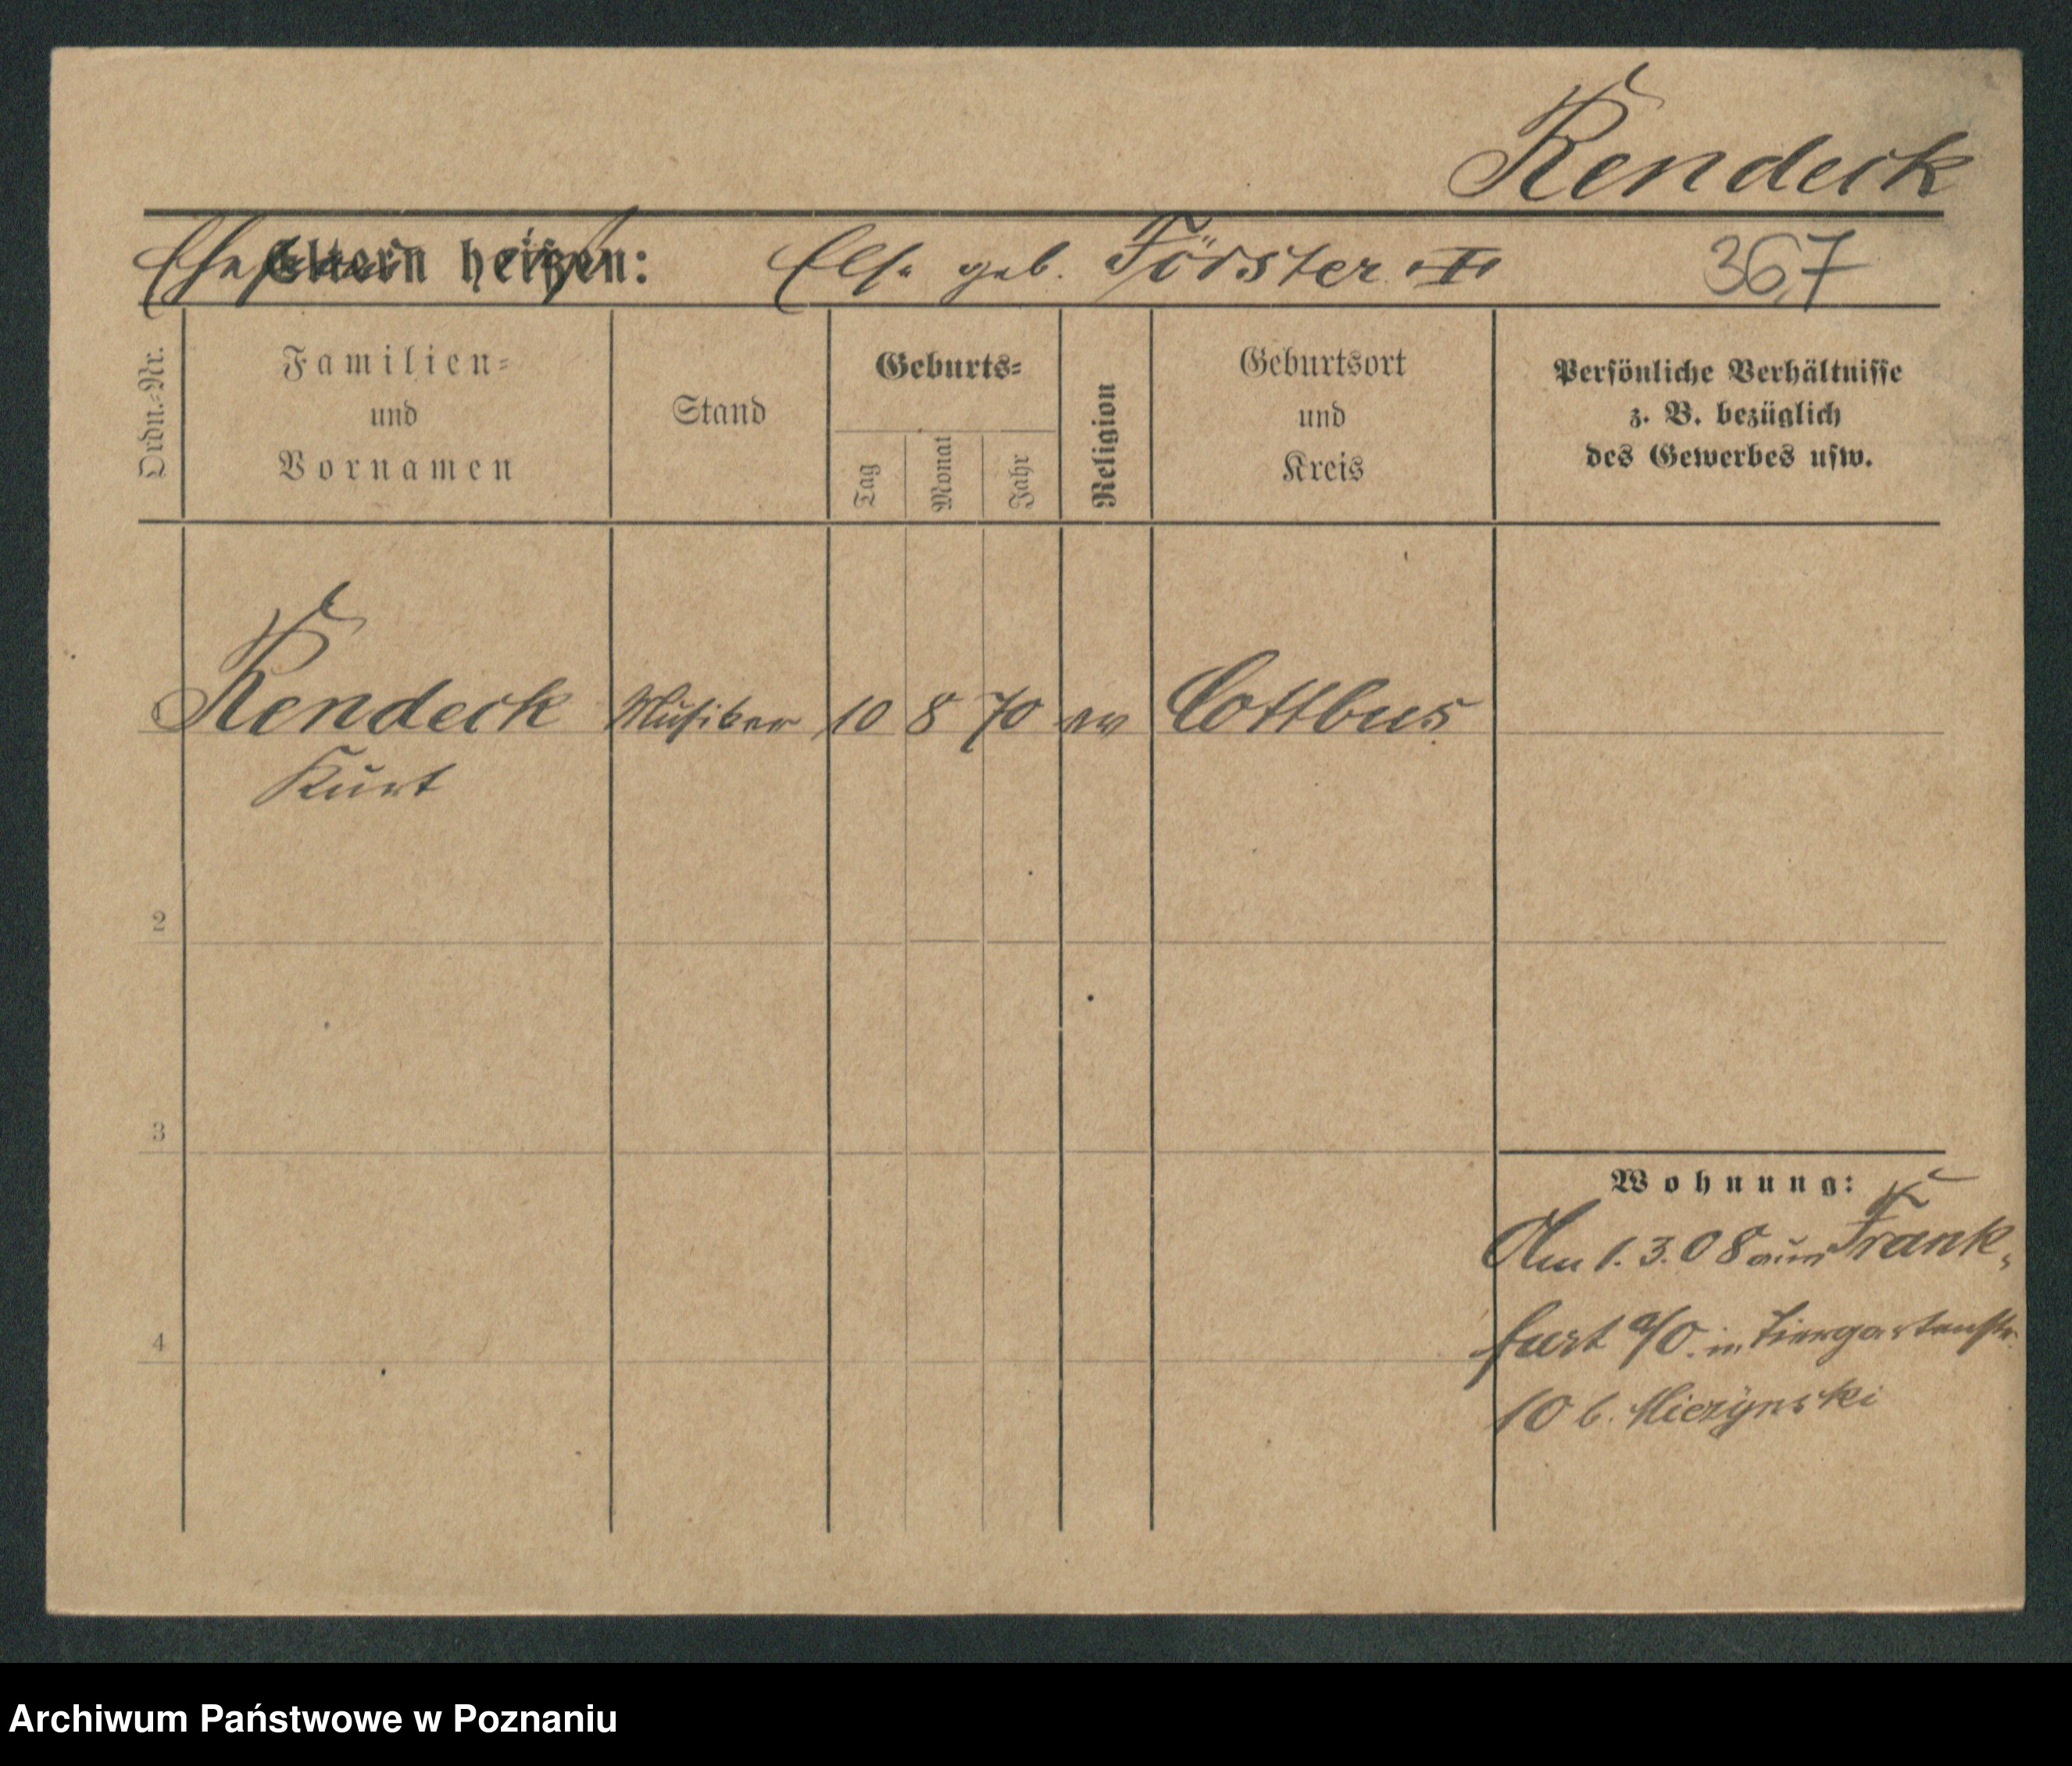 Rendeck
Eltern heißen: Else geb. Förster 367
Ordn.-Nr.
Familien-
und
Vornamen
Stand
Geburts-
Tag
Monat
Jahr
Religion
Geburtsort
und
Kreis
Persönliche Verhältnisse
z. B. bezüglich
des Gewerbes usw.
Rendeck Musiker 10 8 70 ev Cottbus
Kurt
2
3
4
Wohnung:
Am 1.3.08 aus Frank-
furt a/O. in Tiergartenstr.
10 b.
Archiwum Państwowe w Poznaniu